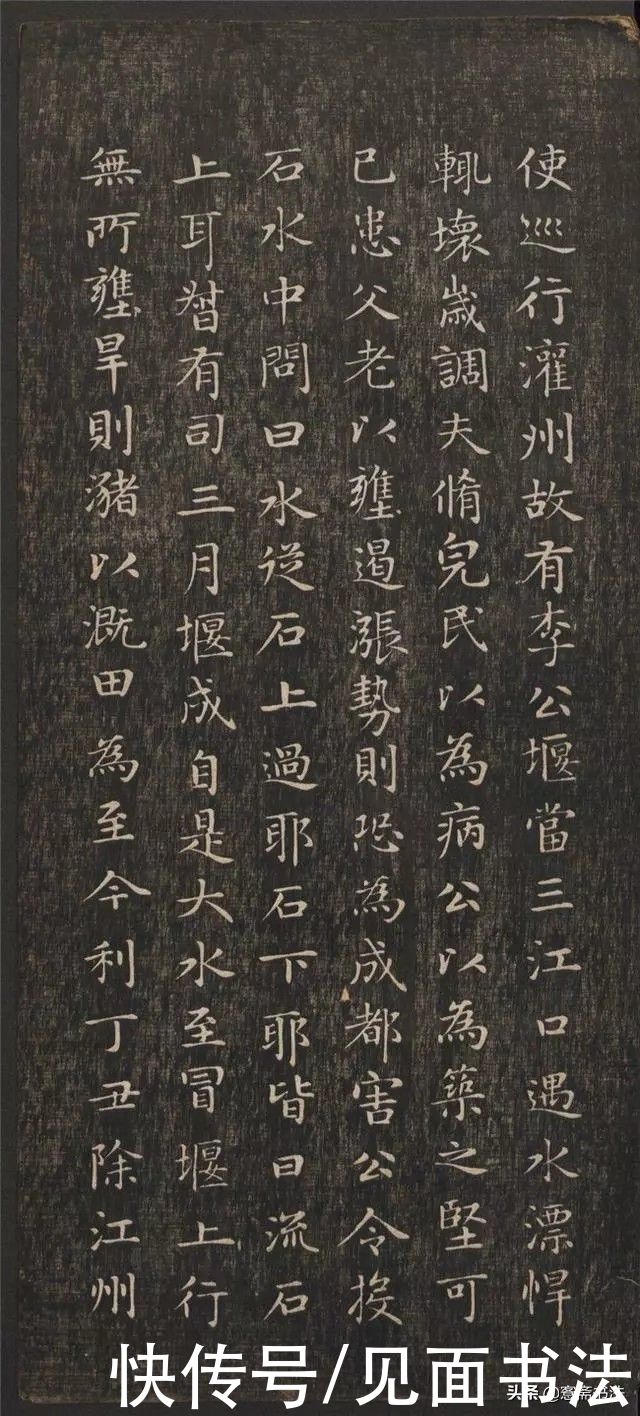 使巡行灌州故有李公堰當三江口遇水漂悍
輒壞歲調夫脩完民以為病公以為築之堅可
已患父老以壅遏漲勢則恐為成都害公令投
石水中問曰水從石上過耶石下耶皆曰流石
上耳督有司三月堰成自是大水至冒堰上行
無所壅旱則瀦以溉田為至今利丁丑除江州
快传号/见面书法
头条@窓斋书法